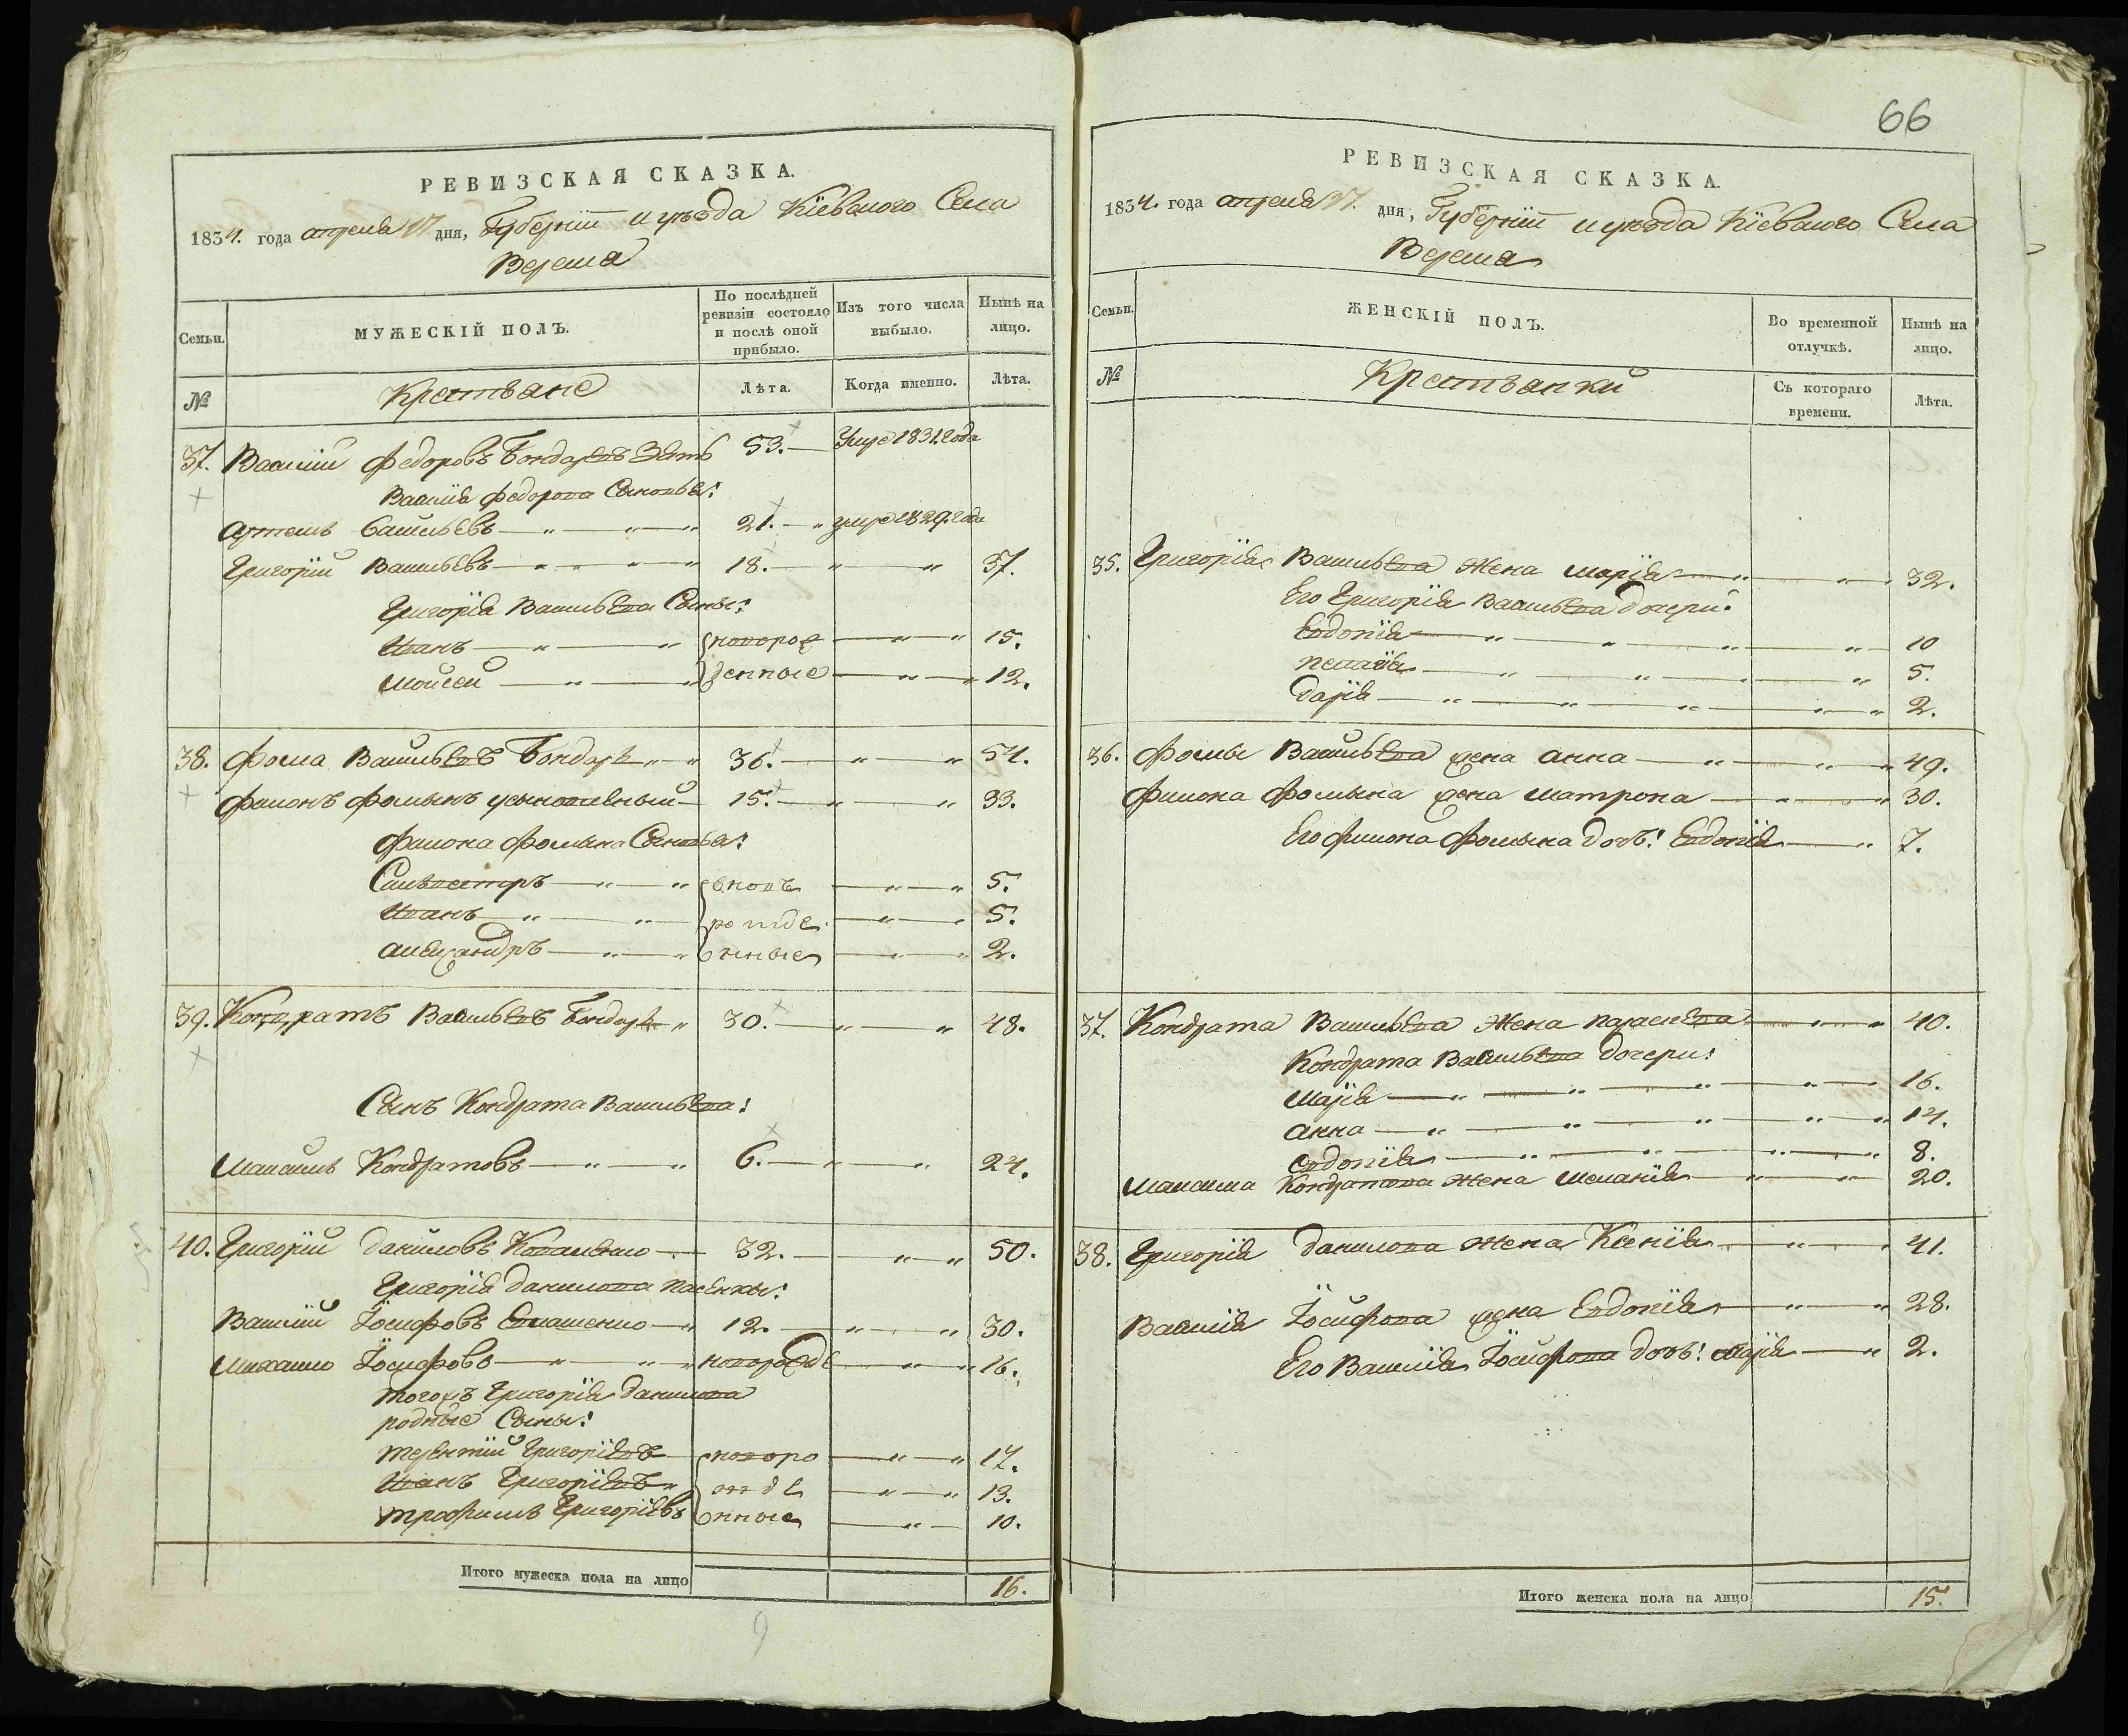 РЕВИЗСКАЯ СКАЗКА.
1834. года апреля 17 дня, Губернiи и уѣзда Кiевского Села
Верема
Семьи.
МУЖЕСКIЙ ПОЛЪ.
По послѣдней ревизiи состояло и послѣ оной прибыло.
Изъ того числа выбыло.
Нынѣ на лицо.
№
Крестьяне
Лѣта.
Когда именно.
Лѣта.
37. Василiй Федоровъ Бондарь Зять 53. Умре 1831. года
Василiя Федорова Сыновья:
Артемъ Васильевъ 21. умре 1829. года
Григорiй Васильевъ 18. 37.
Григорiя Васильева Сыны:
Иванъ новорож 15.
Мойсей денные 12.
38. Фома Васильевъ Бондарь 36. 54.
Филонъ Фоминъ усыновленный 15. 33.
Филона Фомина Сыновья:
Сильвестръ вновь 5.
Иванъ рожде 5.
Александръ нные 2.
39. Кондратъ Васильевъ Бондарь 30. 48.
Сынъ Кондрата Васильева:
Максимъ Кондратовъ 6. 24.
40. Григорiй Даниловъ Коваленко 32. 50.
Григорiя Данилова пасенки:
Василiй Iосифовъ 12. 30.
Михайло Iосифовъ новорожде 16.
Тогожъ Григорiя Данилова
родные Сыны:
Терентiй Григорiевъ новоро 17.
Иванъ Григорiевъ жде 13.
Трофимъ Григорiевъ нные 10.
Итого мужеска пола на лицо 16.
9
66
РЕВИЗСКАЯ СКАЗКА.
1834. года апреля 17. дня, Губернiи и уѣзда Кiевского Села
Верема
Семьи.
ЖЕНСКIЙ ПОЛЪ.
Во временной отлучкѣ.
Нынѣ на лицо.
№
Крестьянки
Съ котораго времени.
Лѣта.
35. Григорiя Васильева жена Марiя 32.
Его Григорiя Васильева дочери:
Евдокiя 10
Пелагiя 5.
Дарiя 2.
36. Фомы Васильева жена Анна 49.
Филона Фомина жена Матрона 30.
Его Филона Фомина дочь: Евдокiя 7.
37. Кондрата Васильева жена Параскева 40.
Кондрата Васильева дочери:
Марiя 16.
Анна 14.
Евдокiя 8.
Максима Кондратова жена Меланiя 20.
38. Григорiя Данилова жена Ксенiя 41.
Василiя Iосифова жена Евдокiя 28.
Его Василiя Iосифова дочь: Марiя 2.
Итого женска пола на лицо 15.